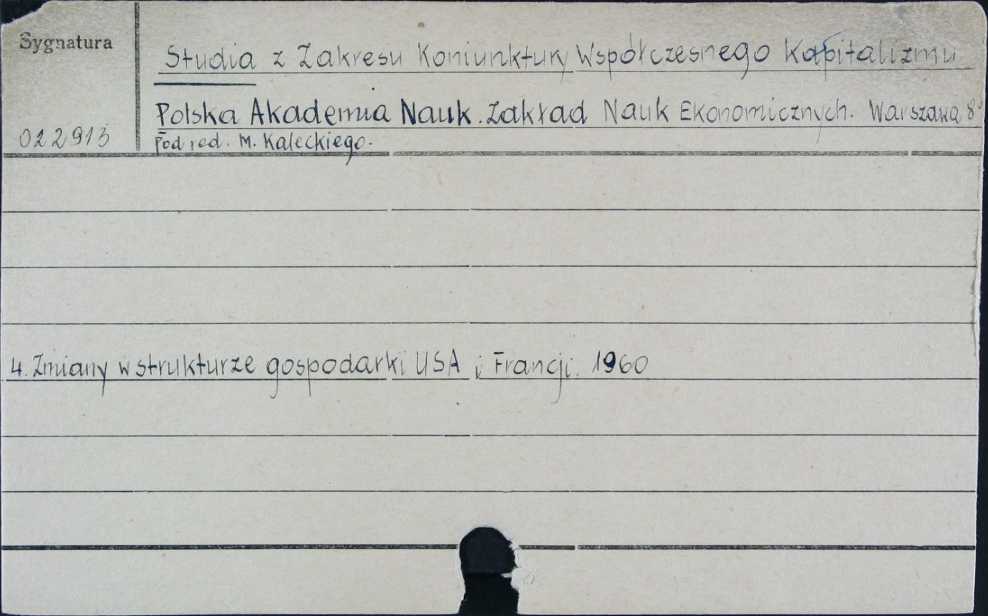 Sygnatura
Studia z Zakresu Koniunktury Współczesnego Kapitalizmu
Polska Akademia Nauk. Zakład Nauk Ekonomicznych. Warszawa 8°
022913
Pod red. M. Kaleckiego.
4. Zmiany w strukturze gospodarki USA i Francji. 1960